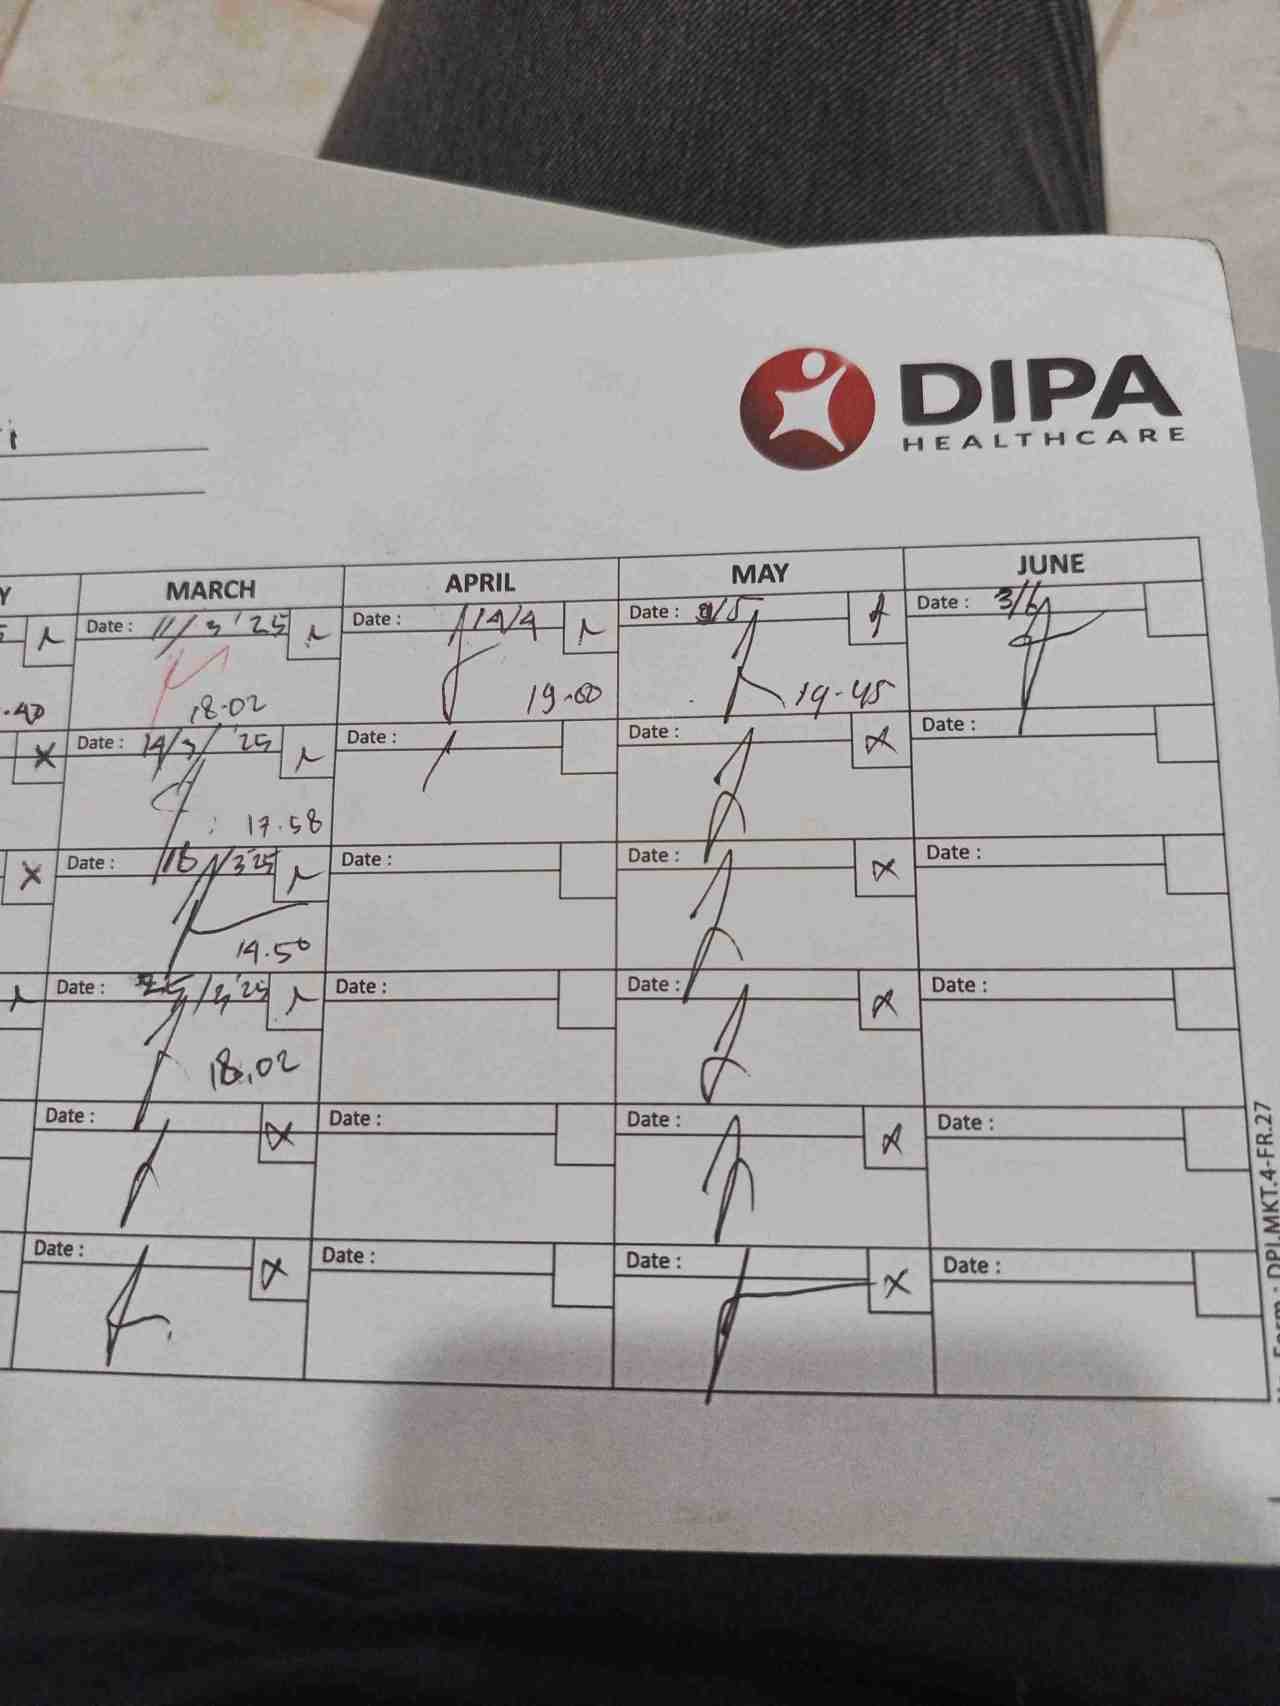 DIPA
HEALTHCARE
MARCH APRIL MAY JUNE
Date : 11/3 '25 Date : 14/4 Date : /5 Date : 3/6
18.02 19.00 19-45
Date : 14/3/ '25 Date : Date : Date :
17.58
Date : 18/3 25 Date : Date : Date :
14.50
Date : 25/3 '25 Date : Date : Date :
18.02
Date : Date : Date : Date :
Date : Date : Date : Date :
Form : DPI.MKT.4-FR.27